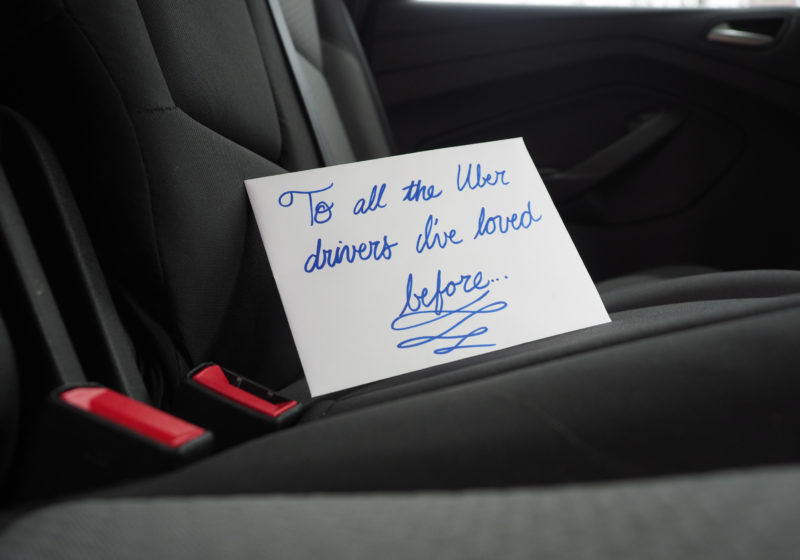 To all the Uber
drivers I've loved
before...